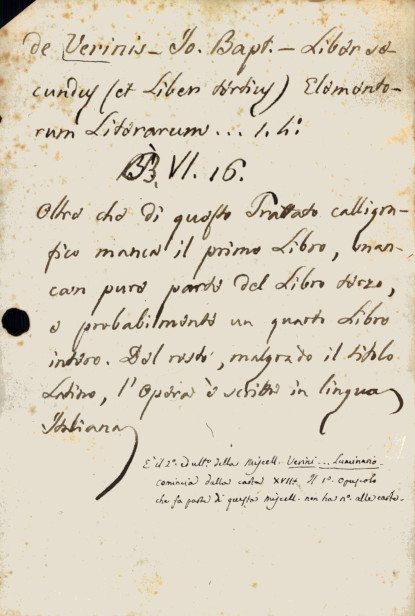 de Verinis - Jo. Bapt. - Liber se
cundus (et Liber tertius) Elemento-
rum Literarum... 1. 4:
VI. 16.
Oltre che di questo Trattato calligra-
fico manca il primo Libro, man-
can pure parte del Libro terzo,
e probabilmente un quarto Libro
intero. Del resto, malgrado il titolo
Latino, l'Opera è scritta in lingua
Italiana
È il 2º. ed ult.º della Miscell. Verini ... Luminario.
comincia dalla carta XVII Il 1º. Opuscolo
che fa parte di questa miscell. non ha nº. alle carte.